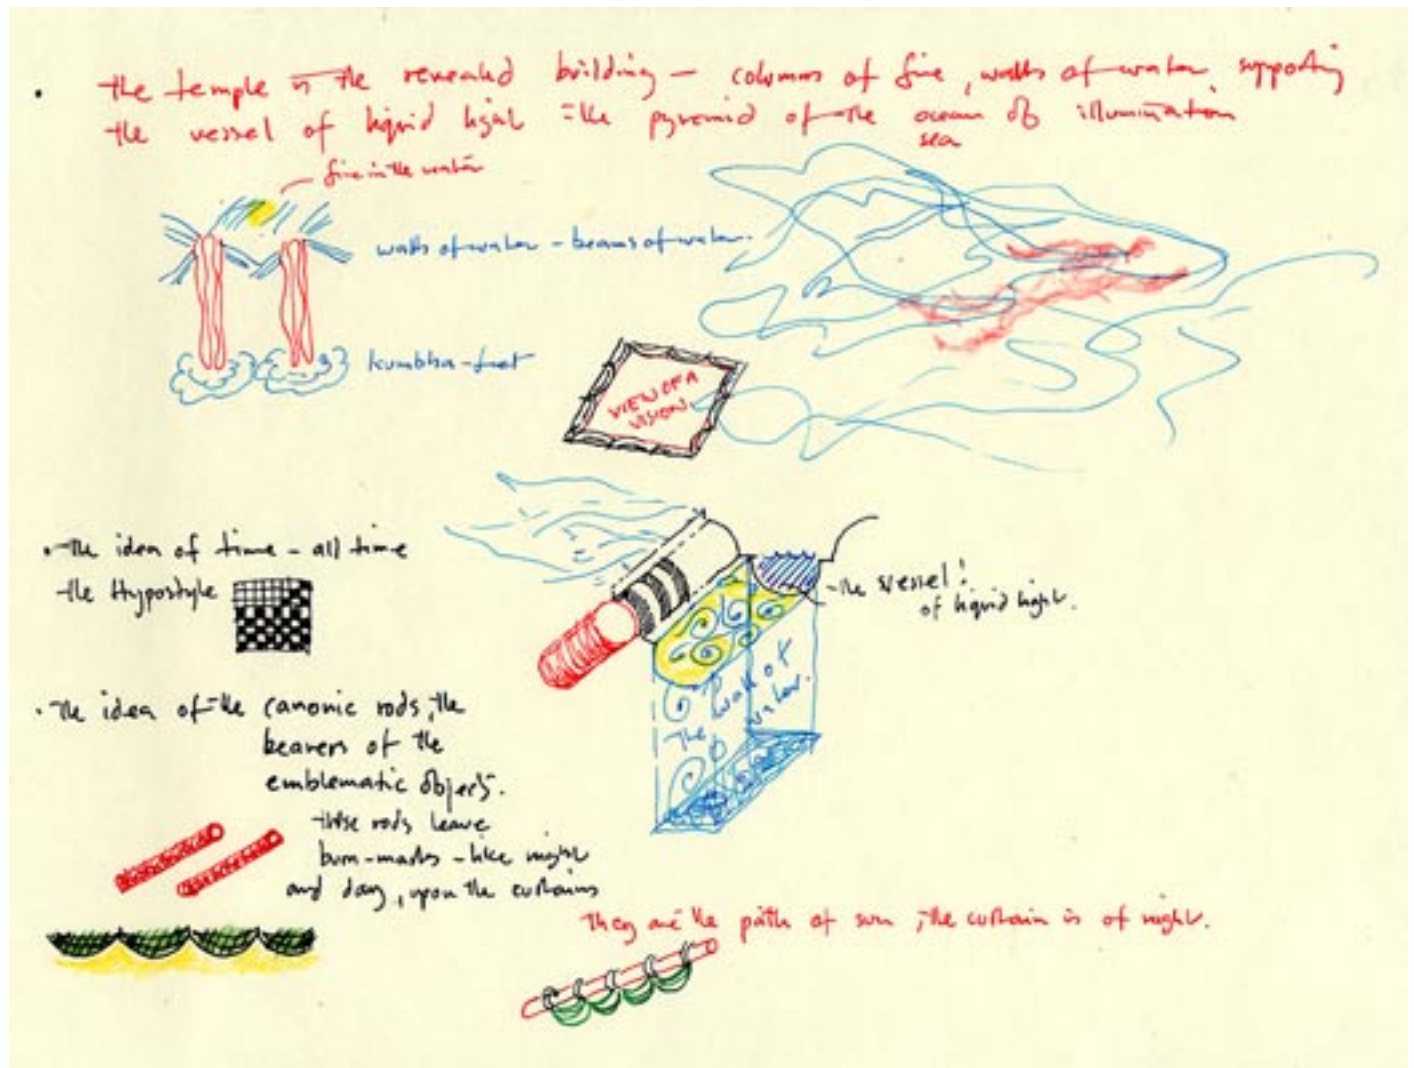 the temple is the revealed building - columns of fire, walls of water, supporting
the vessel of liquid light = the pyramid of the ocean of illumination
sea
fire in the water
walls of water - beams of water.
kumbha-feet
VIEW OF A
VISION.
• The idea of time - all time
the Hypostyle
the vessel!
of liquid light.
The wall of
water.
• The idea of the canonic rods, the
bearers of the
emblematic objects.
these rods leave
burn-marks - like night
and day, upon the curtains
They are the path of sun, the curtain is of night.